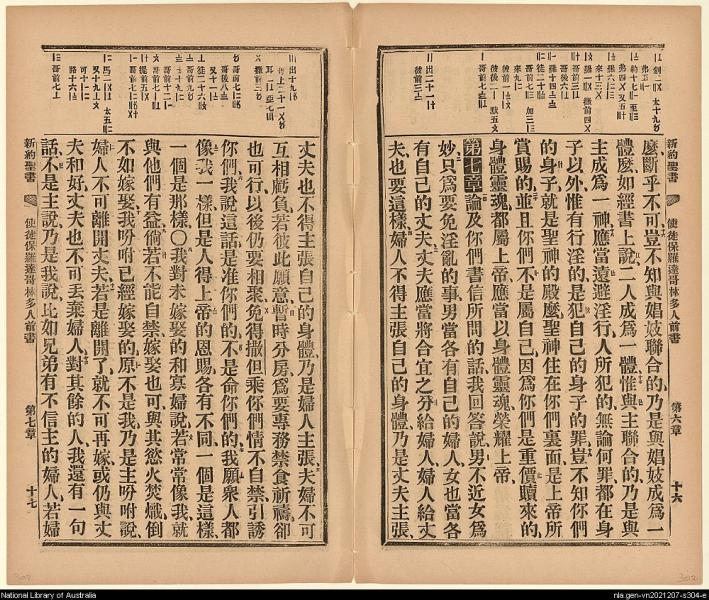 新約聖書
使徒保羅達哥林多人前書
第六章
十六
麼斷乎不可豈不知與娼妓聯合的乃是與娼妓成爲一
體麼如經書上說二人成爲一體惟與主聯合的乃是與
主成爲一神應當遠避淫行人所犯的無論何罪都在身
子以外惟有行淫的是犯自己的身子的罪豈不知你們
的身子就是聖神的殿麼聖神住在你們裏面是上帝所
賞賜的並且你們不是屬自己因爲你們是重價贖來的
身體靈魂都屬上帝應當以身體靈魂榮耀上帝
第七章論及你們書信所問的話我回答說男不近女爲
妙只爲要免淫亂的事男當各有自己的婦人女也當各
有自己的丈夫丈夫應當將合宜之分給婦人婦人給丈
夫也要這樣婦人不得主張自己的身體乃是丈夫主張
丈夫也不得主張自己的身體乃是婦人主張夫婦不可
互相虧負若彼此願意暫時分房爲要專務禁食祈禱卻
也可行以後仍要相聚免得撒但乘你們情不自禁引誘
你們我說這話是准你們的不是命你們的我願衆人都
像我一樣但是人得上帝的恩賜各有不同一個是這樣
一個是那樣〇我對未嫁娶的和寡婦說若常常像我就
與他們有益倘若不能自禁嫁娶也可與其慾火焚燬倒
不如嫁娶我吩咐已經嫁娶的原不是我乃是主吩咐說
婦人不可離開丈夫若是離開了就不可再嫁或仍與丈
夫和好丈夫也不可丟棄婦人對其餘的人我還有一句
話不是主說乃是我說比如兄弟有不信主的婦人若婦
新約聖書
使徒保羅達哥林多人前書
第七章
十七
National Library of Australia
nla.gen-vn2021207-s304-e